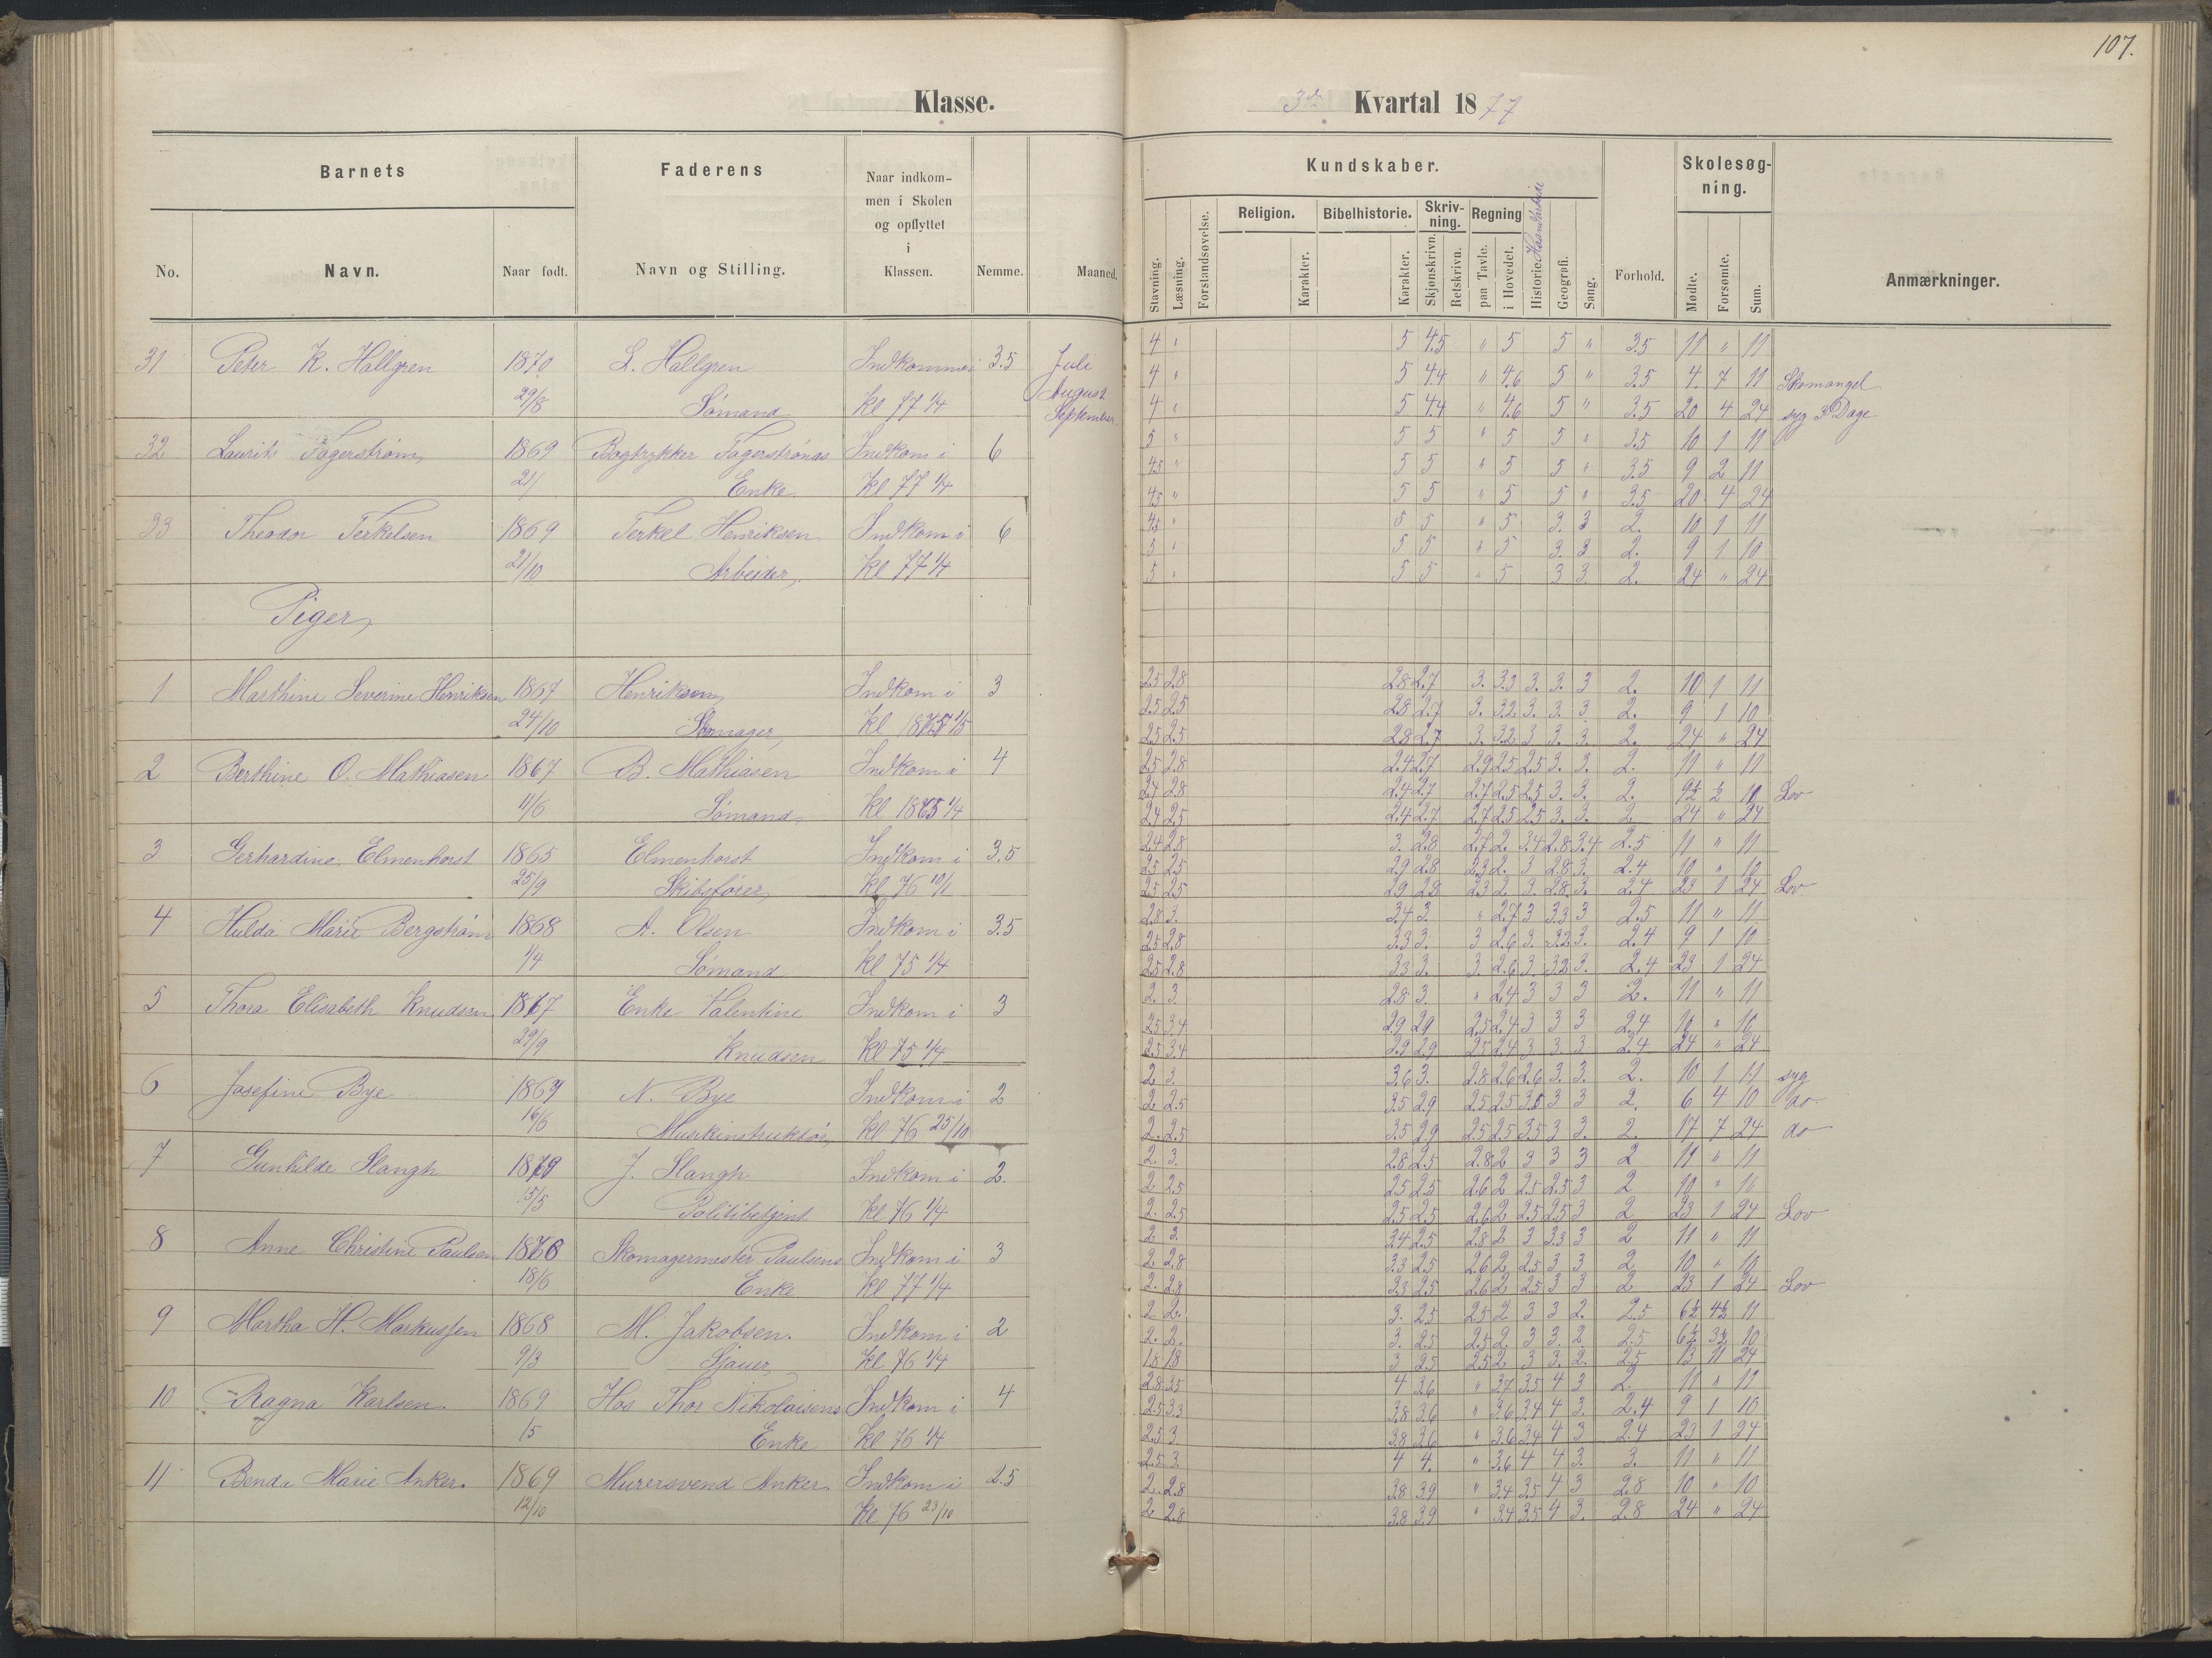 107.
Klasse.
3de Kvartal 1877
Barnets
Faderens
Naar indkom-
men i Skolen
og opflyttet
i
Klassen.
No.
Navn.
Naar født.
Navn og Stilling.
Nemme.
Maaned.
Kundskaber.
Skolesøg-
ning.
Religion.
Bibelhistorie.
Skriv-
ning.
Regning
Stavning.
Læsning.
Forstandsøvelse.
Karakter.
Karakter.
Skjønskrivn.
Retskrivn.
paa Tavle.
i Hovedet.
Historie. Haandarbeide
Geografi.
Sang.
Forhold.
Mødte.
Forsømte.
Sum.
Anmærkninger.
31 Peter K. Hallgren 1870 L. Hallgren Indkommen i 3.5 Juli 4 " 5 4.5 " 5 5 " 3.5 11 " 11
August 4 " 5 4.4 " 4.6 5 " 3.5 4 7 11 Skomangel
29/8 Sømand Kl 77 1/4 September 4 " 5 4.4 " 4.6 5 " 3.5 20 4 24 syg 3 Dage
32 Laurits Fagerstrøm 1869 Bogtrykker Fagerstrøms Indkom i 6 5 " 5 5 " 5 5 " 3.5 10 1 11
4.5 " 5 5 " 5 5 " 3.5 9 2 11
21/ Enke Kl 77 1/4 4.5 " 5 5 " 5 5 " 3.5 20 4 24
33 Theodor Terkelsen 1869 Terkel Henriksen Indkom i 6 4.5 " 5 5 " 5 3. 3 2. 10 1 11
5 " 5 5 " 5 3. 3 2. 9 1 10
21/10 Arbeider, Kl 77 1/4 5 " 5 5 " 5 3 3. 2. 24 " 24
Piger,
1 Marthine Severine Henriksen 1867 Henriksen Indkom i 3 2.5 2.8 2.8 2.7 3. 3.3 3. 3. 3 2. 10 1 11
2.5 2.5 2.8 2.7 3. 3.2 3. 3. 3 2. 9 1 10
24/10 Skomager, Kl 1875 1/5 2.5 2.5 2.8 2.7 3. 3.2 3 3. 3. 2. 24 " 24
2 Berthine O. Mathiasen 1867 B. Mathiasen Indkom i 4 2.5 2.8 2.4 2.7 2.9 2.5 2.5 3. 3. 2. 11 " 11
2.4 2.8 2.4 2.7 2.7 2.5 2.5 3. 3. 2. 9½ ½ 10 Lov
11/6 Sømand, Kl 1875 1/4 2.4 2.5 2.4 2.7 2.7 2.5 2.5 3. 3. 2 24 " 24
3 Gerhardine Elmenhorst 1865 Elmenhorst Indkom i 3.5 2.4 2.8 3. 2.8 2.7 2. 3.4 2.8 3.4 2.5 11 " 11
2.5 2.5 2.9 2.8 2.3 2. 3 2.8 3. 2.4 10 " 10
25/9 Skibsfører, Kl 76 10/1 2.5 2.5 2.9 2.8 2.3 2. 3. 2.8 3. 2.4 23 1 24 Lov
4 Hulda Marie Bergstrøm 1868 A. Olsen Indkom i 3.5 2.8 3. 3.4 3. " 2.7 3 3.3 3 2.5 11 " 11
2.5 2.8 3.3 3. 3 2.6 3. 3.2 3. 2.4 9 1 10
1/4 Sømand Kl 75 1/4 2.5 2.8 3.3 3. 3. 2.6 3. 3.2 3. 2.4 23 1 24
5 Thora Elisabeth Knudsen 1867 Enke Valentine Indkom i 3 2. 3. 2.8 3. " 2.4 3 3 3 2. 11 " 11
2.5 3.4 2.9 2.9 2.5 2.4 3 3 3 2.4 10 " 10
29/9 Knudsen Kl 75 1/4 2.5 3.4 2.9 2.9 2.5 2.4 3 3. 3 2.4 24 " 24
6 Josefine Bye 1869 N. Bye Indkom i 2 2 3. 3.6 3. 2.8 2.6 2.6 3. 3. 2. 10 1 11 syg
2 2.5 3.5 2.9 2.5 2.5 3.5 3 3 2. 6 4 10 do
16/6 Musikinstruktør, Kl 76 25/10 2. 2.5 3.5 2.9 2.5 2.5 3.5 3 3. 2. 17 7 24 do
7 Gunhilde Slangh 1869 J. Slangh Indkom i 2. 2. 3. 2.8 2.5 2.8 2 3 3 3 2 11 " 11
2 2.5 2.5 2.5 2.6 2 2.5 2.5 3 2 10 " 10
15/5 Politibetjent Kl 76 1/4 2. 2.5 2.5 2.5 2.6 2 2.5 2.5 3 2 23 1 24 Lov
8 Anne Christine Paulsen 1868 Skomagermester Paulsens Indkom i 3 2 3. 3.4 2.5 2.8 2 3 3.3 3 2 11 " 11
2 2.8 3.3 2.5 2.6 2 2.5 3 3 2 10 " 10
18/6 Enke Kl 77 1/4 2. 2.8 3.3 2.5 2.6 2 2.5 3 3 2 23 1 24 Lov
9 Martha H. Markussen 1868 M. Jakobsen. Indkom i 2 2. 2. 3. 2.5 2.5 2 3 3 2. 2.5 6½ 4½ 11
2. 2. 3. 2.5 2.5 2. 3 3. 2 2.5 6½ 3½ 10
9/3 Sjauer, Kl 76 1/4 1.8 1.8 3 2.5 2.5 2 3 3. 2. 2.5 13 11 24
10 Ragna Karlsen. 1869 Hos Thor Nikolaisens Indkom i 4 2.8 3.5 4 3.6 " 3.7 3.5 4 3 2. 11 " 11
2.5 3.3 3.8 3.6 " 3.6 3.4 4 3. 2.4 9 1 10
15 Enke Kl 76 1/4 2.5 3. 3.8 3.6 " 3.6 3.4 4 3 2.4 23 1 24
11 Benda Marie Anker. 1869 Murersvend Anker. Indkom i 2.5 2.5 3. 4 4. " 3.6 4 4 3. 3. 11 " 11
2. 2.8 3.8 3.9 " 3.4 3.5 4 3 2.8 10 " 10
12/10 Kl 76 23/10 2 2.8 3.8 3.9 " 3.4 3.5 4 3. 2.8 24 " 24